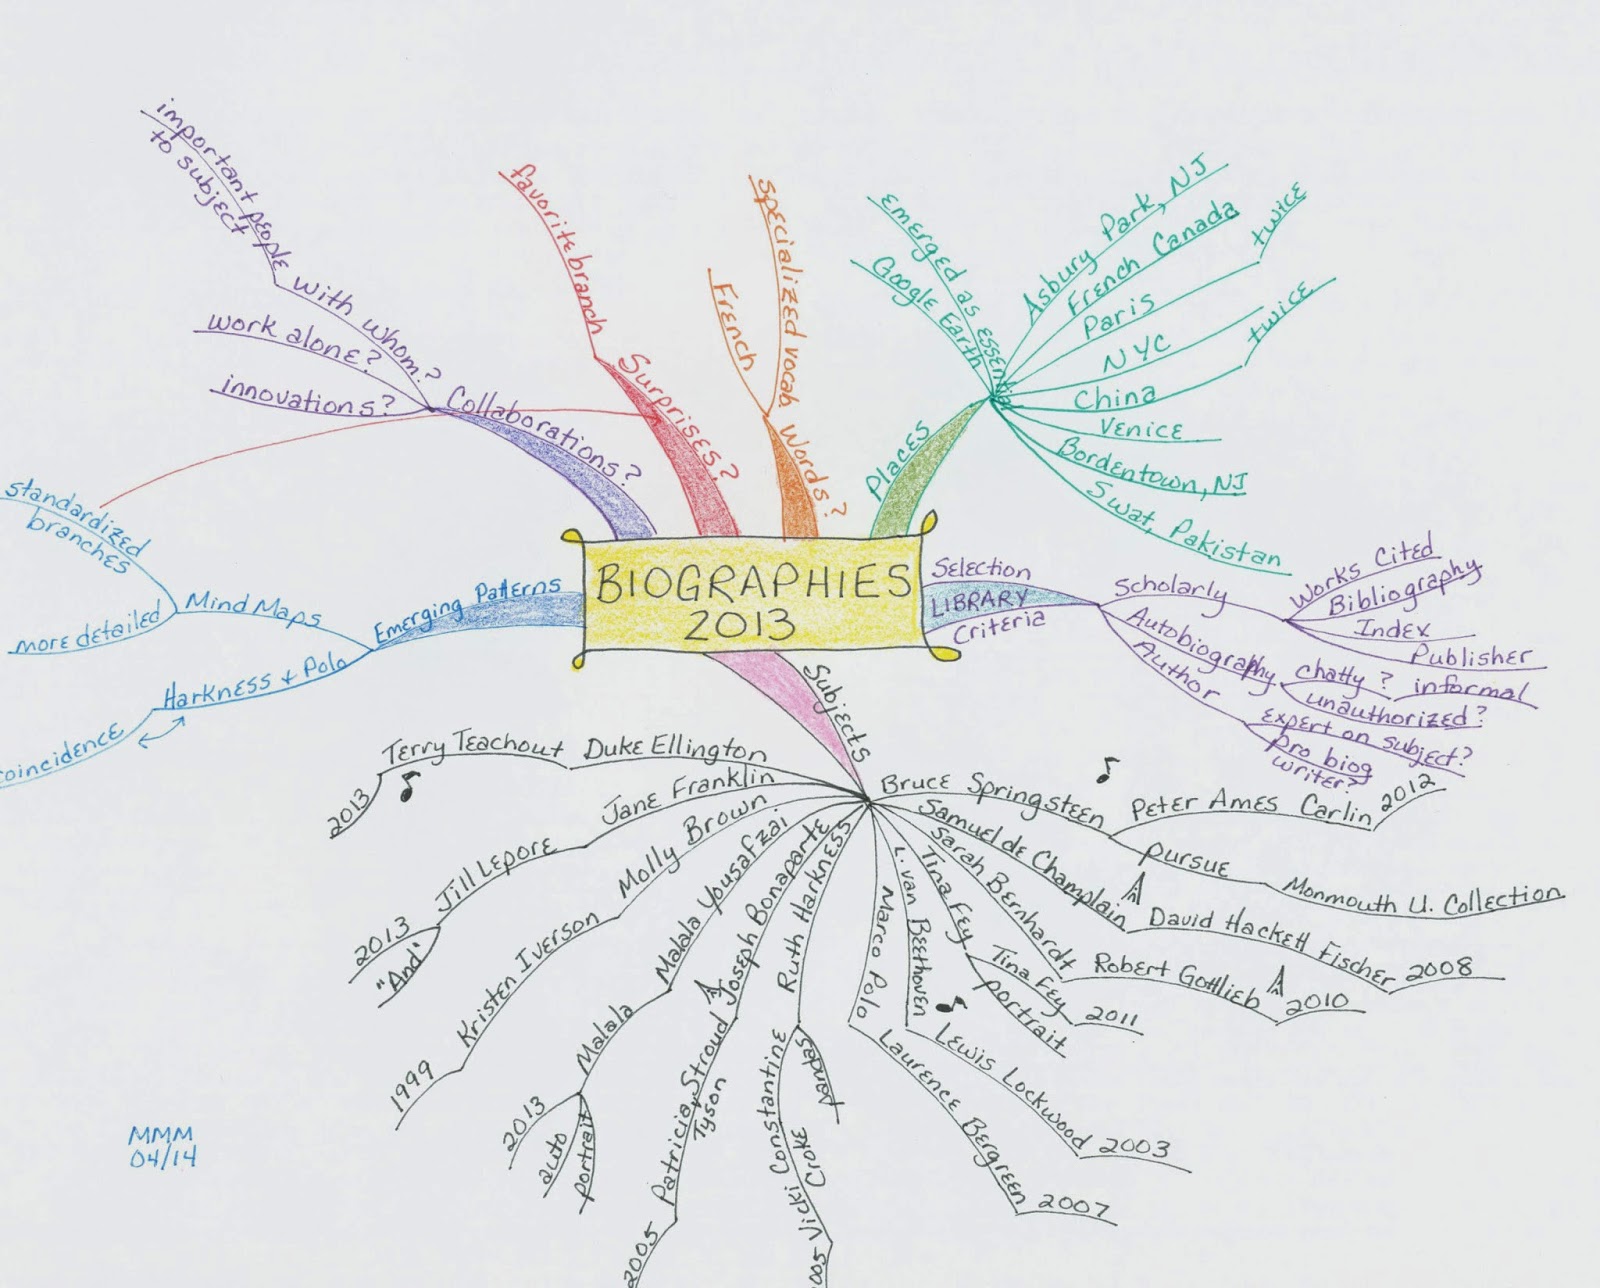 BIOGRAPHIES
2013
Collaborations?
important people
to subject
with whom?
work alone?
innovations?
Surprises?
favorite branch
Words?
specialized vocab
French
Places
emerged as essential
Google Earth
Asbury Park, NJ
French Canada
Paris
twice
NYC
China
twice
Venice
Bordentown, NJ
Swat, Pakistan
Selection
LIBRARY
Criteria
Scholarly
Works Cited
Bibliography
Index
Publisher
Autobiography
chatty?
informal
unauthorized?
Author
expert on subject?
pro biog
writer?
Emerging Patterns
Mind Maps
standardized
branches
more detailed
Harkness & Polo
coincidence
Subjects
Duke Ellington
Terry Teachout
2013
Jane Franklin
Jill Lepore
2013
"And"
Molly Brown
Kristen Iverson
1999
Malala Yousafzai
Malala
2013
auto
portrait
Joseph Bonaparte
Patricia Stroud
Tyson
2005
Ruth Harkness
pandas
Vicki Constantine
Croke
Marco Polo
Laurence Bergreen
2007
L. van Beethoven
Lewis Lockwood
2003
Tina Fey
Tina Fey
2011
portrait
Sarah Bernhardt
Robert Gottlieb
2010
Samuel de Champlain
David Hackett Fischer
2008
Bruce Springsteen
Peter Ames Carlin
2012
pursue
Monmouth U. Collection
MMM
04/14